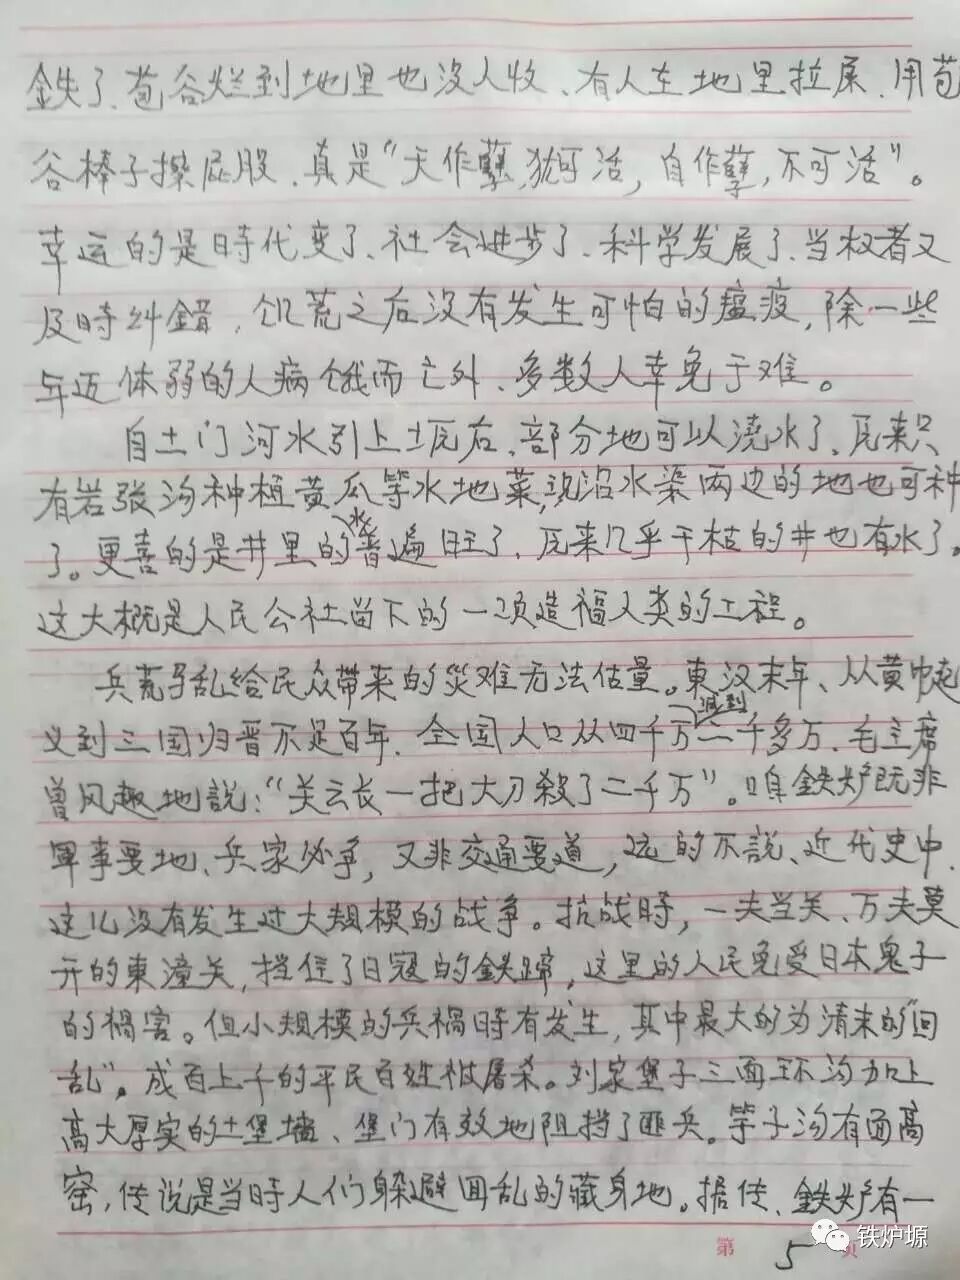 鉄了、苞谷烂到地里也没人收、有人在地里拉屎、用苞
谷棒子擦屁股、真是“天作孽,犹可活，自作孽,不可活”。
幸运的是時代变了、社会进步了、科学发展了、当权者又
及時纠錯，饥荒之后没有发生可怕的瘟疫,除一些
年迈体弱的人病饿而亡外、多数人幸免于难。
自土门河水引上塬后、部分地可以浇水了、原来只
有岩张沟种植黄瓜等水地菜,说沿水渠两边的地也可种
了。更喜的是井里的水普遍旺了、原来几乎干枯的井也有水了。
这大概是人民公社留下的一项造福人类的工程。
兵荒马乱给民众带来的災难无法估量。東汉末年、从黄巾起
义到三国归晋不足百年、全国人口从四千万减到二千多万、毛主席
曾风趣地說:“关云长一把大刀殺了二千万”。咱鉄炉既非
軍事要地、兵家必争，又非交通要道，远的不說、近代史中、
这儿没有发生过大规模的战争。抗战時，一夫当关、万夫莫
开的東潼关，挡住了日寇的鉄蹄，这里的人民免受日本鬼子
的禍害。但小规模的兵禍時有发生，其中最大的为清末的“回
乱”。成百上千的平民百姓被屠杀。刘家堡子三面环沟加上
高大厚实的土堡墙、堡门有效地阻挡了匪兵。等子沟有面高
窑,传说是当時人们躲避回乱的藏身地。据传、鉄炉有一
第 5 页
铁炉塬